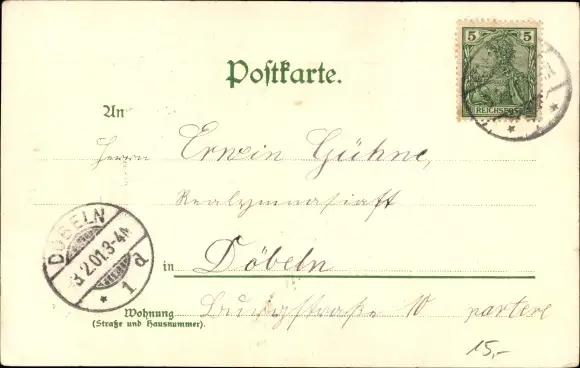 5 5
REICHSPOST
Postkarte.
An
Herrn Erwin Gühne,
Realgymnasiast
DÖBELN
3.2.01.3-4N.
* 1 d
in Döbeln
Wohnung Burgstraße 10 partere
(Straße und Hausnummer).
15,-